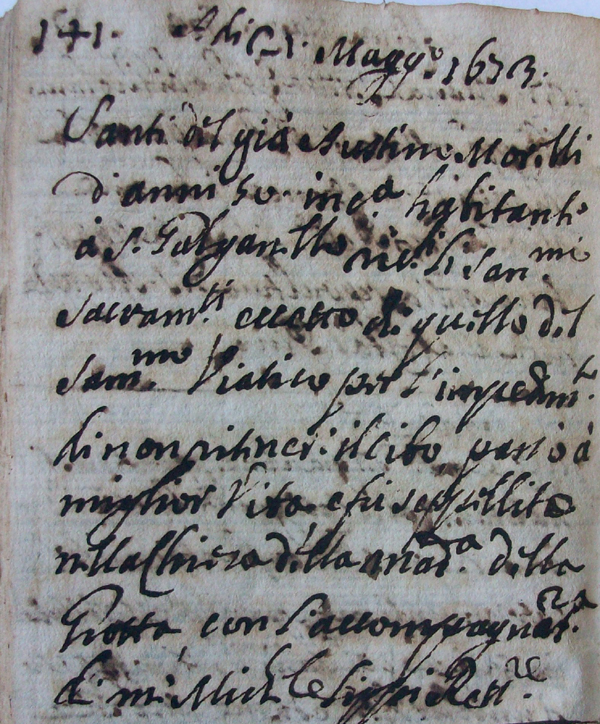 141. Adi 21 Magg.o 1673.
Santi del già Austino Morelli
d'anni 50 in c.a habitante
à S. Galganello ric. li San.mi
Sacram.ti eccetto di quello del
Sam.mo Viatico per l'impedim.to
di non ritiner il cibo passò à
miglior Vita e fù seppellito
nella Chiesa della Mad.a della
Grotta con l'accompagnat.ra
di me Michele Lippi Rett.re